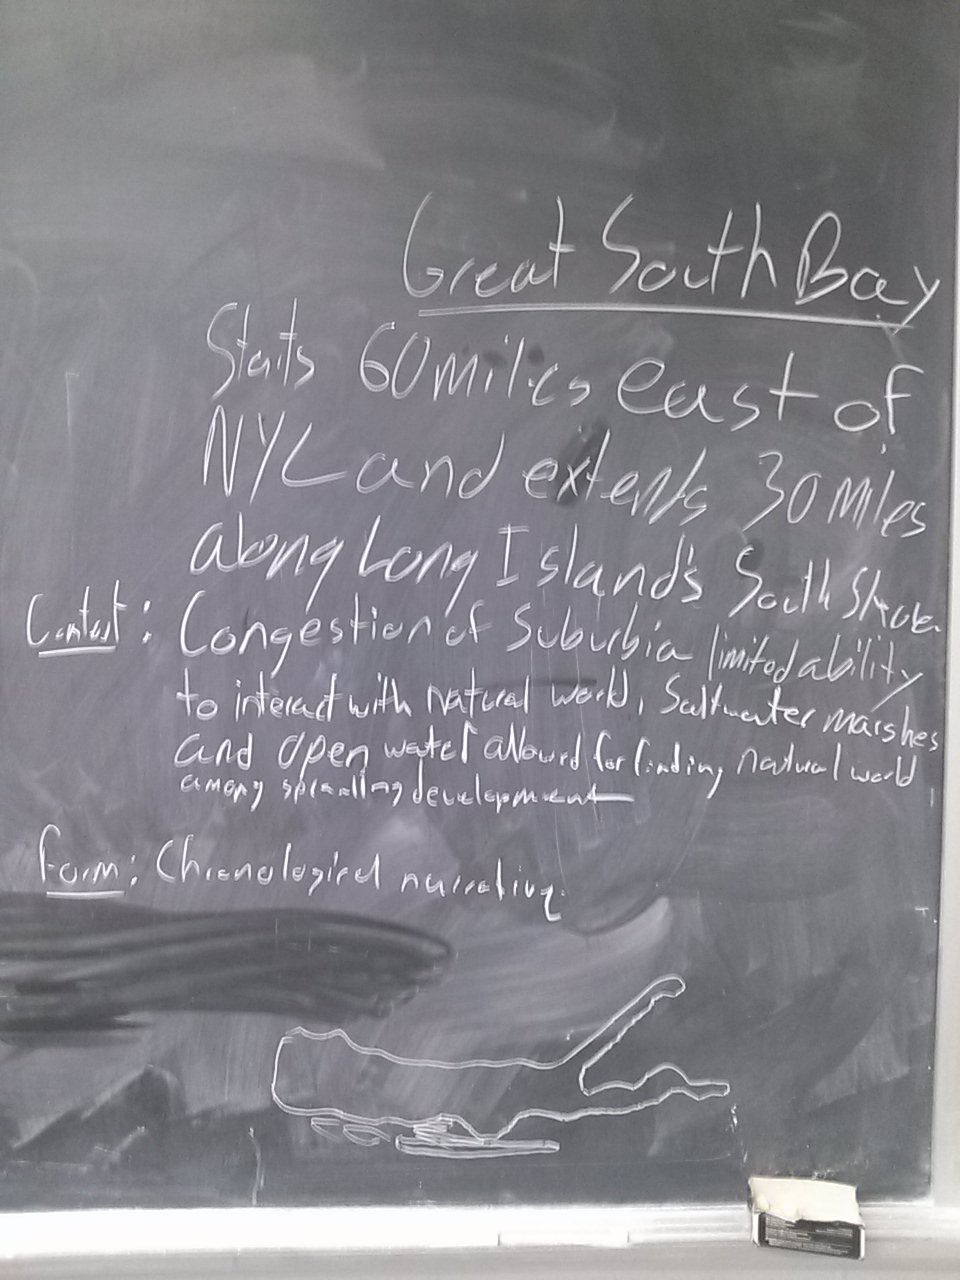 Great South Bay
Starts 60 miles east of
NYC and extends 30 miles
along Long Island's South Shore.
Context: Congestion of Suburbia limited ability
to interact with natural world, Saltwater marshes
and open water allowed for finding natural world
among sprawling development
Form: Chronological narrative.